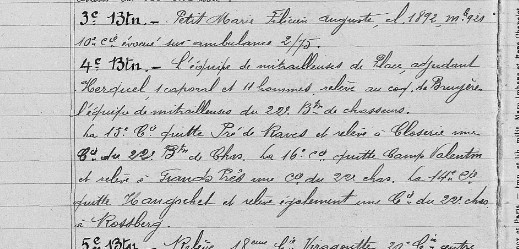 3e Btn. — Petit Marie Félicien Auguste, cl 1892, mle 921
10e Cie évacué sur ambulance 2/75.
4e Btn. — L'équipe de mitrailleuses de Place, adjudant
Herquel, 1 caporal et 11 hommes, relève au coq de Bruyère
l'équipe de mitrailleuses du 22e Btn de chasseurs.
La 15e Cie quitte Pré de Raves et relève à Closerie une
Cie du 22e Btn de Chas. La 16e Cie quitte Camp Valentin
et relève à Grands Prés une Cie du 22e chas. La 14e Cie
quitte et relève également une Cie du 22e chas
à Rossberg.
5e Btn — Relève 18eme Cie 20e Cie quitte